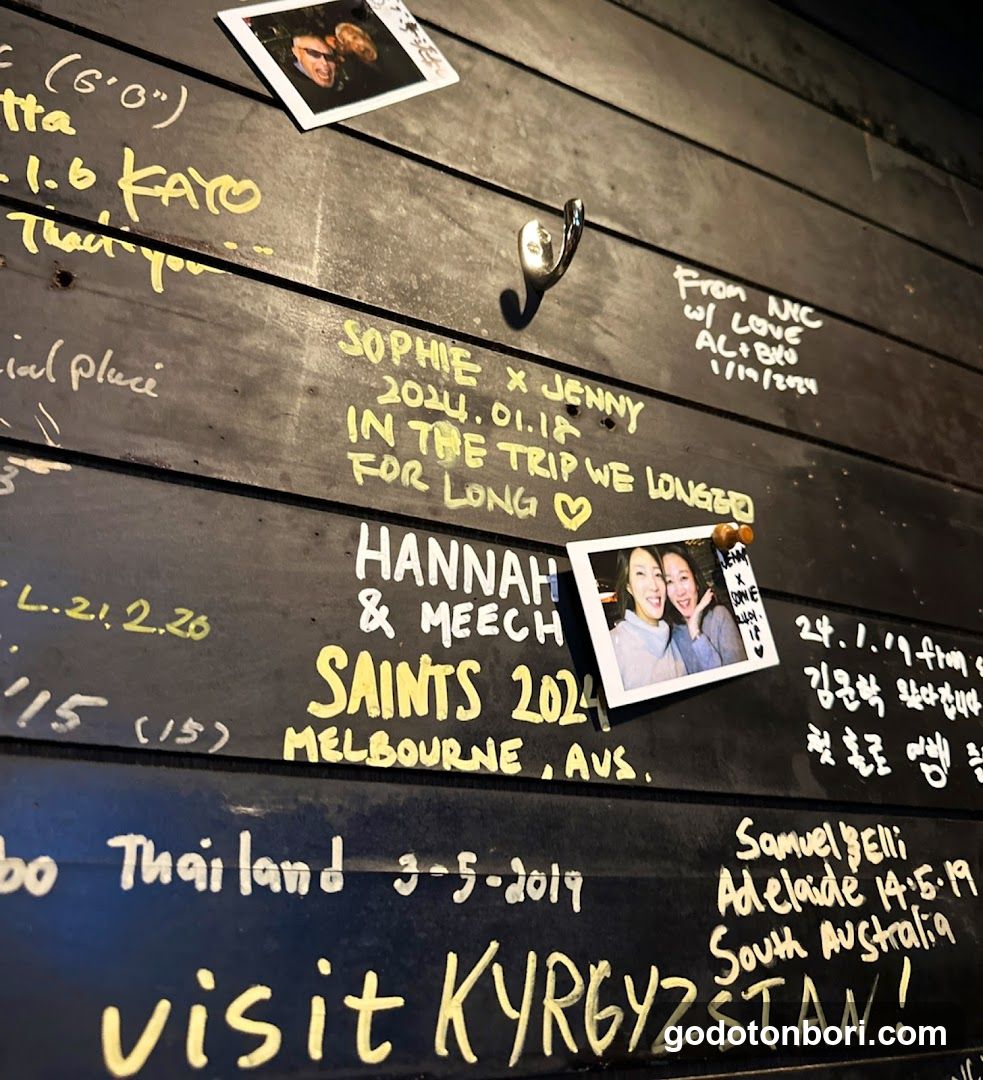 (6'0")
tta
.1.6 KAYO
Thank you...
From NYC
W/ LOVE
AL + BKO
1/19/2024
SOPHIE X JENNY
2024.01.18
IN THE TRIP WE LONGED
FOR LONG ♡
cial place
HANNAH
& MEECH
SAINTS 2024
MELBOURNE, AUS.
JENNY
X
SOPHIE
L.21.2.20
'15 (15)
24.1.19 from
김문학 왔다갑니다
첫 홀로 여행
bo Thailand 3-5-2019
Samuel & Elli
Adelaide 14.5.19
South Australia
visit KYRGYZSTAN!
godotonbori.com